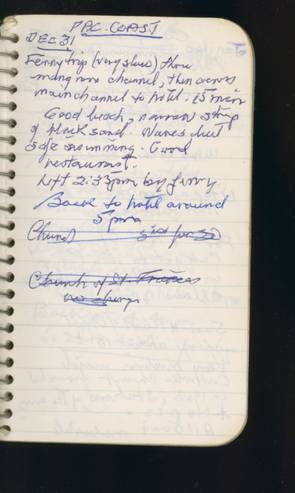 PAC. COAST
DEC 31
Ferry trip (very slow) thru
mangrove channel, then across
main channel to hotel. 15 min
Good beach, narrow strip
of black sand. Waves but
safe swimming. Good
restaurant.
Left 2:35pm by ferry
Back to hotel around
5 pm
Church
Church of St. Francis
no change